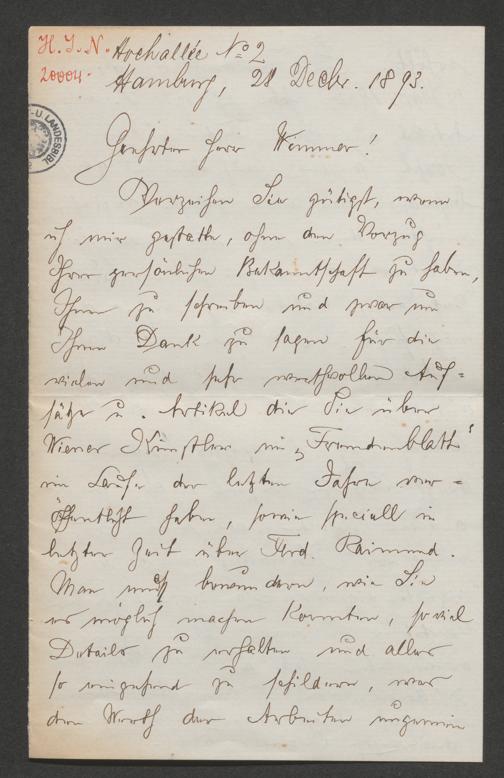 H. I. N.
20004.
Hochallée No 2
Hamburg, 28 Decbr. 1893.
U. LANDESBIBL
Geehrter Herr Wimmer!
Verzeihen Sie gütigst, wenn
ich mir gestatte, ohne den Vorzug
Ihrer persönlichen Bekanntschaft zu haben,
Ihnen zu schreiben und zwar um
Ihnen Dank zu sagen für die
vielen und sehr werthvollen Auf-
sätze u. Artikel die Sie über
Wiener Künstler im „Fremdenblatt"
im Laufe der letzten Jahre ver-
öffentlicht haben, sowie speciell in
letzter Zeit über Ferd. Raimund.
Man muß bewundern, wie Sie
es möglich machen konnten, so viel
Details zu erhalten und alles
so eingehend zu schildern, was
den Werth der Arbeiten ungemein